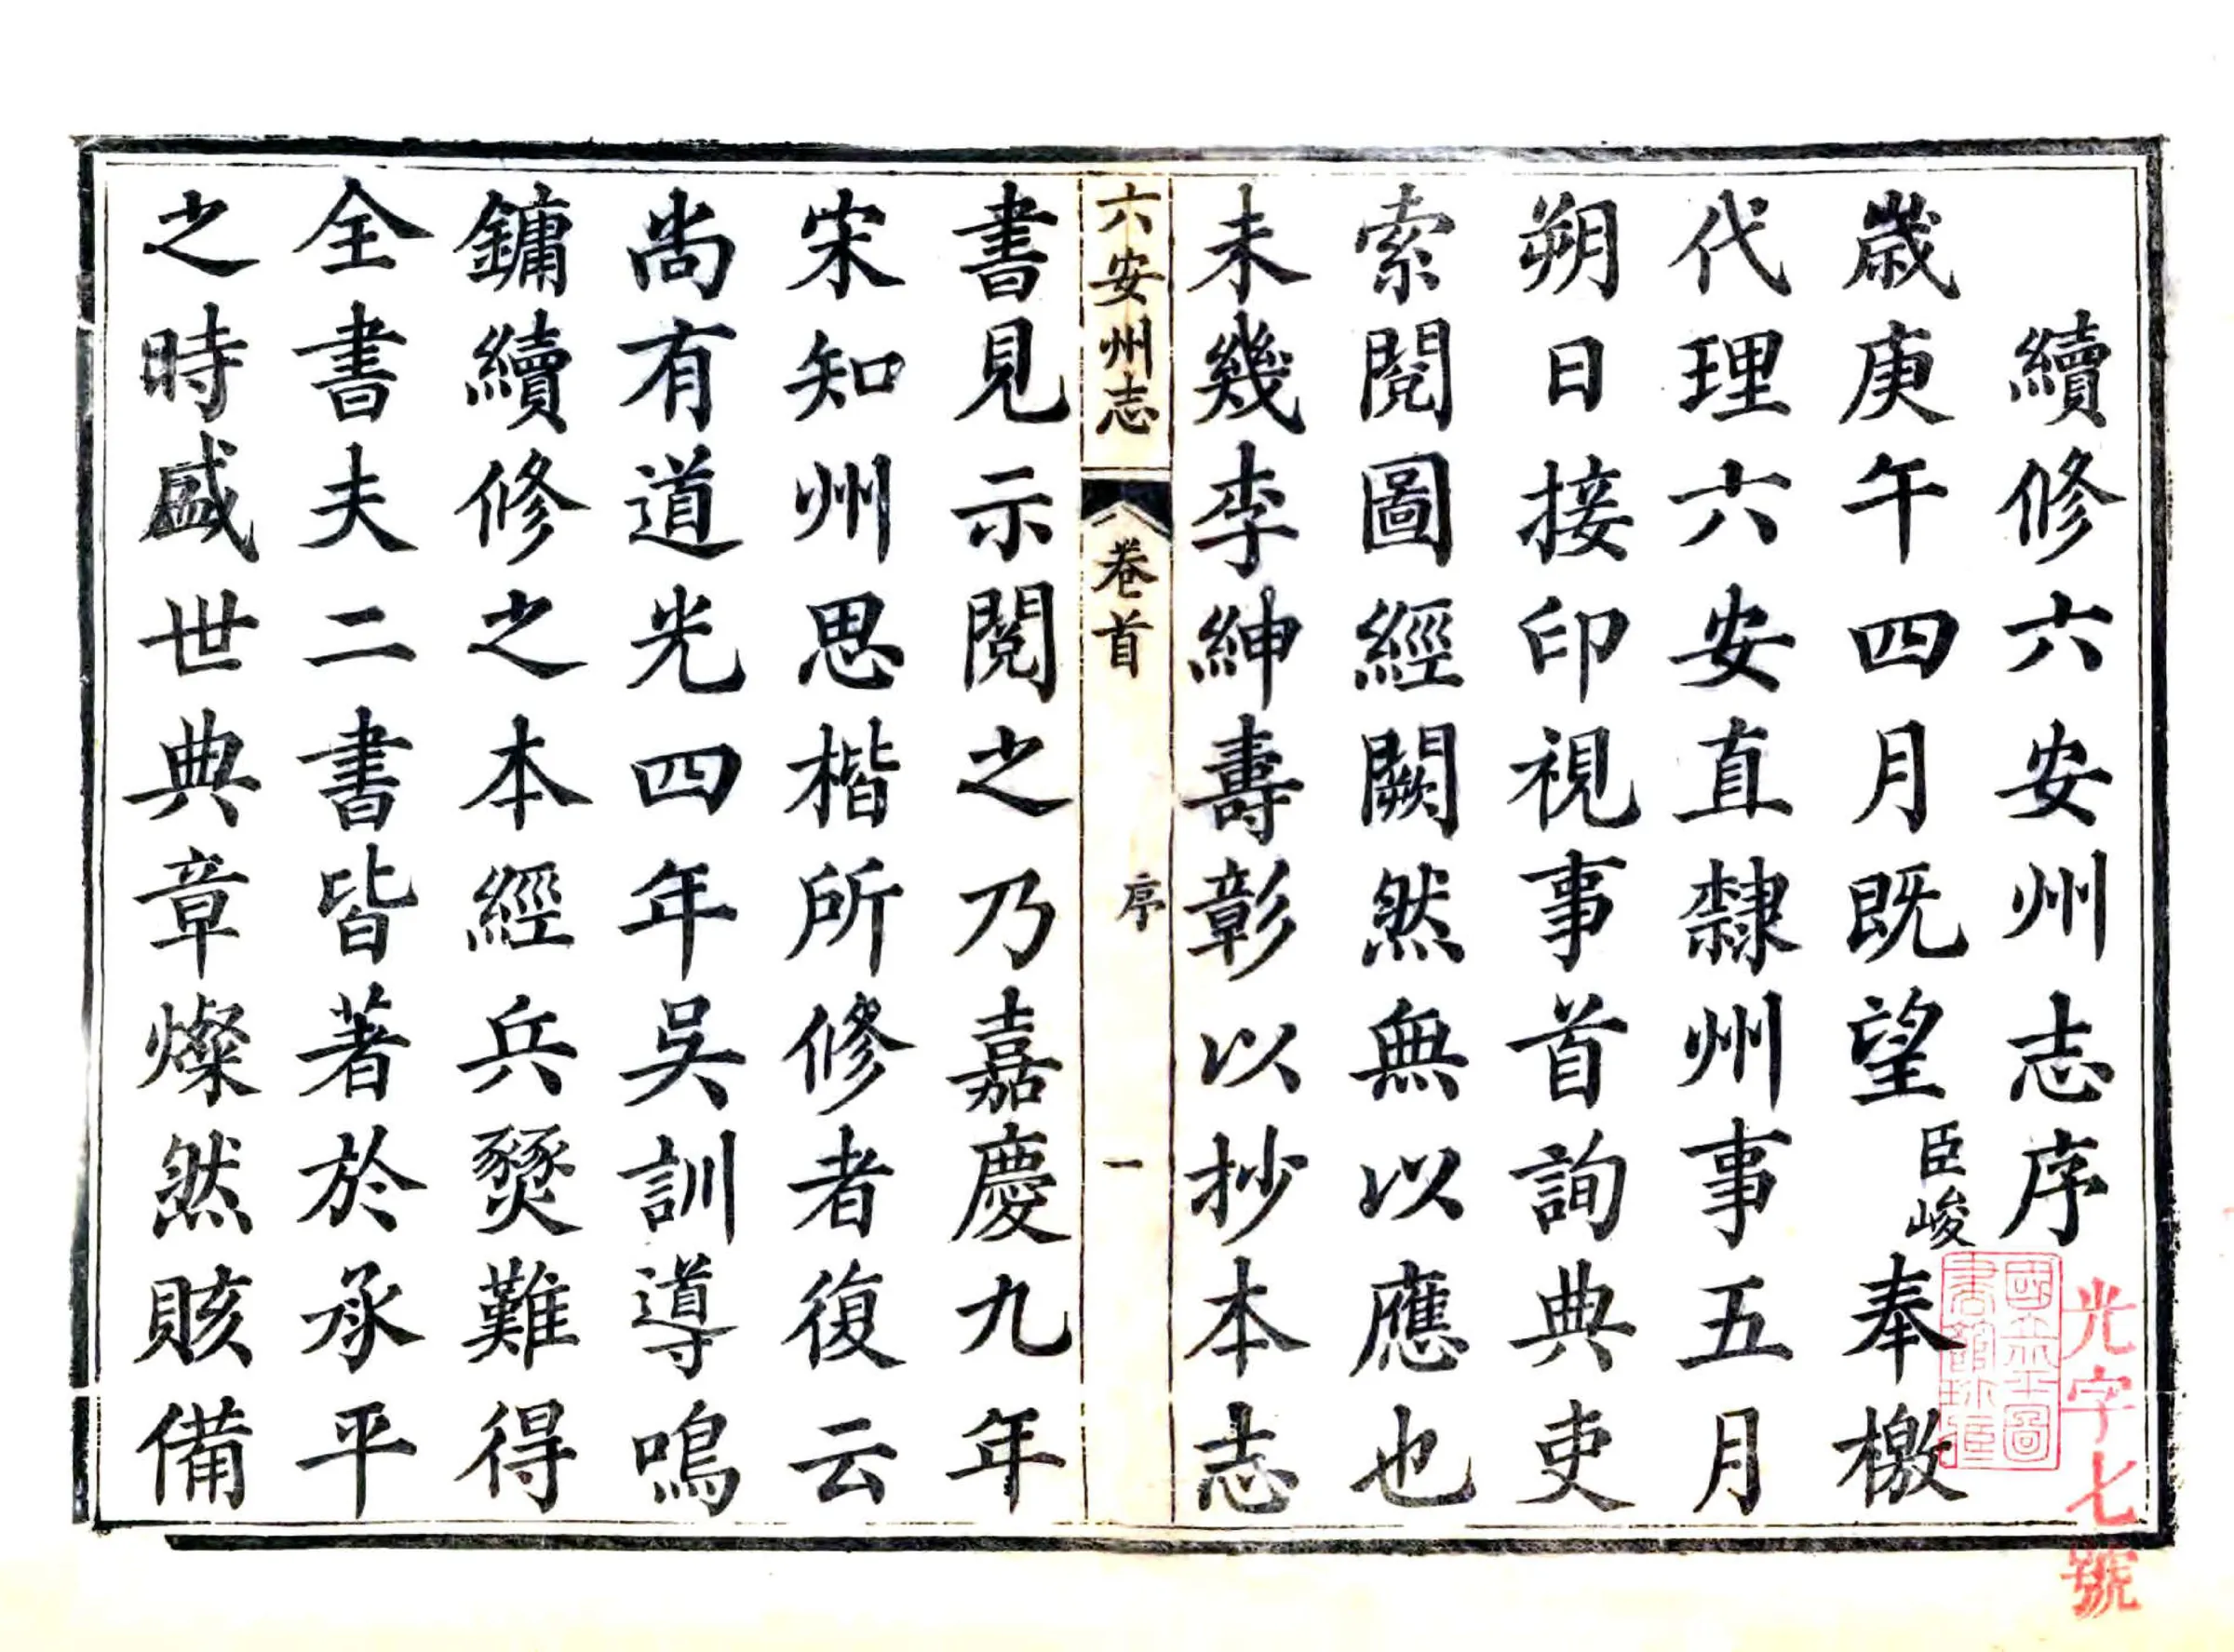 續修六安州志序
歲庚午四月既望臣峻奉檄
代理六安直隸州事五月
朔日接印視事首詢典吏
索閱圖經闕然無以應也
未幾李紳壽彰以抄本志
六安州志 卷首 序 一
書見示閱之乃嘉慶九年
宋知州思楷所修者復云
尚有道光四年吳訓導鳴
鏞續修之本經兵燹難得
全書夫二書皆著於承平
之時盛世典章燦然賅備
光字七號